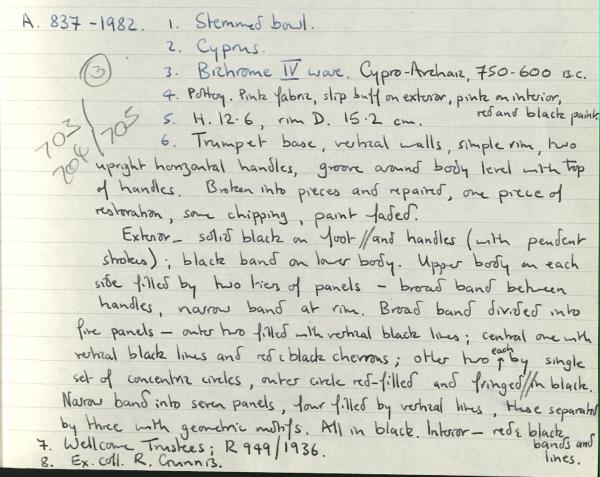 A. 837-1982. 1. Stemmed bowl.
2. Cyprus.
3. Bichrome IV ware. Cypro-Archaic, 750-600 B.C.
4. Pottery. Pink fabric, slip buff on exterior, pink on interior,
red and black paint
5. H. 12.6, rim D. 15.2 cm.
6. Trumpet base, vertical walls, simple rim, two
upright horizontal handles, groove around body level with top
of handles. Broken into pieces and repaired, one piece of
restoration, some chipping, paint faded.
Exterior - solid black on foot // and handles (with pendent
strokes); black band on lower body. Upper body on each
side filled by two tiers of panels - broad band between
handles, narrow band at rim. Broad band divided into
five panels - outer two filled with vertical black lines; central one with
vertical black lines and red & black chevrons; other two each by single
set of concentric circles, outer circle red-filled and fringed // in black.
Narrow band into seven panels, four filled by vertical lines, these separated
by three with geometric motifs. All in black. Interior - red & black
bands and
lines.
7. Wellcome Trustees; R 949/1936.
8. Ex. coll. R. Gunnis.
3
703/
704/705